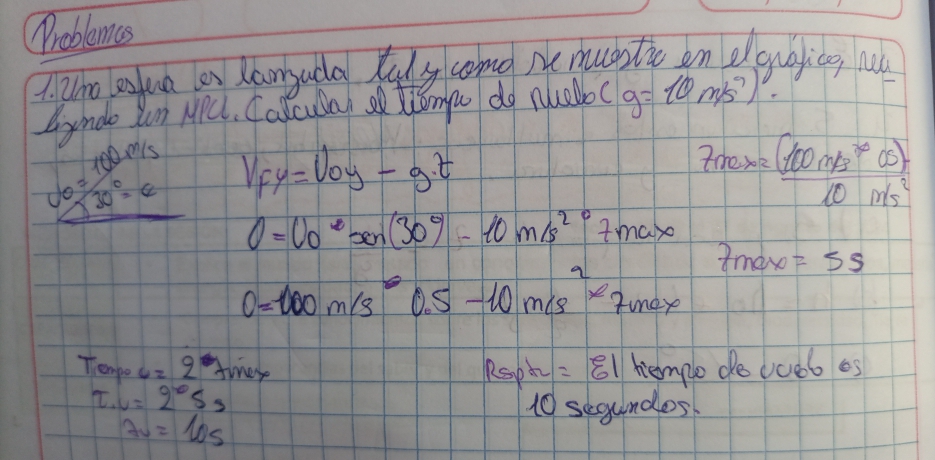 Problemas
1. Una esfera es lanzada tal y como se muestra en el gráfico, rea
lizando un MPCL. Calcular el tiempo de vuelo (g = 10 m/s²).
Vo = 100 m/s
30° = θ
VFy = Voy - g.t
0 = Vo • sen(30°) - 10 m/s² • Tmax
0 = 100 m/s • 0.5 - 10 m/s² * Tmax
Tmax = (100 m/s * 0.5)
10 m/s²
Tmax = 5s
Tiempo v = 2 • Tmax
T.v = 2 • 5s
Tv = 10s
Rspta = El tiempo de vuelo es
10 segundos.